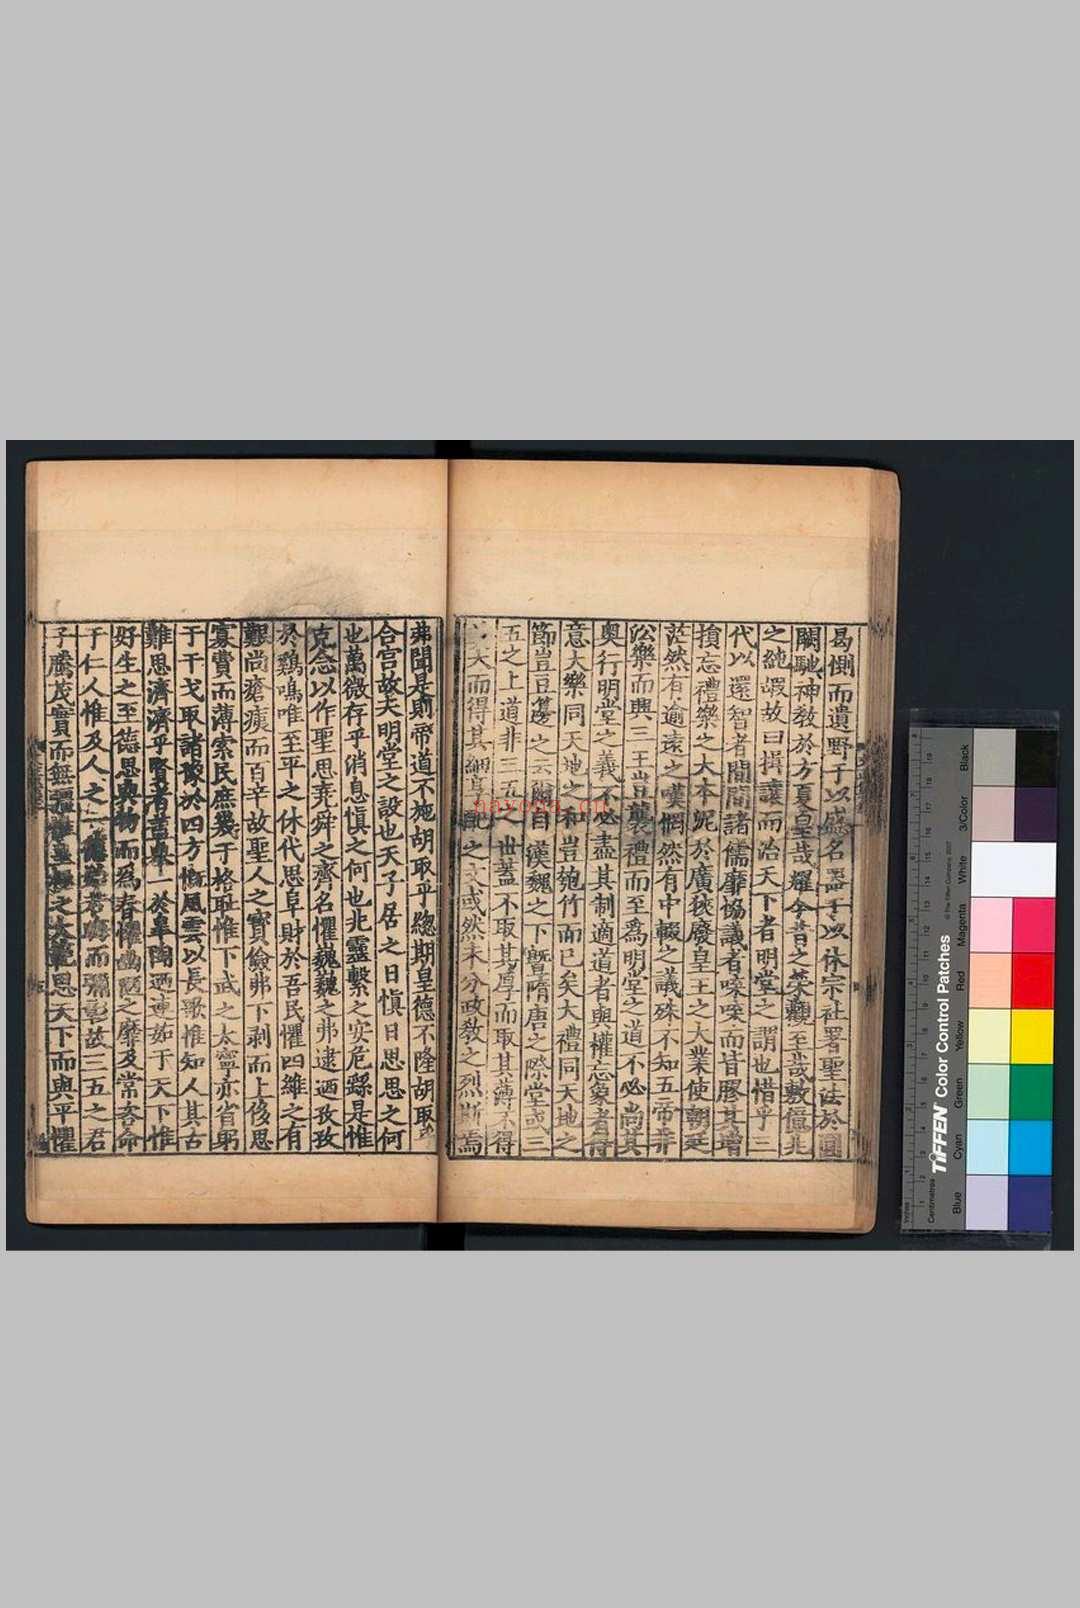 曷惻而遺野予以盛名器予以休宗社署聖法於圓
闢馳神教於方夏皇哉耀今昔之榮觀至哉敷億兆
之純嘏故曰揖讓而治天下者明堂之謂也惜乎三
代以還智者間間諸儒靡協議者喋喋而皆膠其增
損忘禮樂之大本泥於廣狹廢皇王之大業使朝廷
茫然有逾遠之嘆惘然有中輟之議殊不知五帝非
沿樂而興三王豈襲禮而至為明堂之道不必尚其
奥行明堂之義不必盡其制適道者與權忘象者得
意大樂同天地之和豈匏竹而已矣大禮同天地之
節豈豆籩之云爾自漢魏之下曁隋唐之際堂或三
五之上道非三五之世蓋不取其厚而取其薄不得
其大而得其細享配之文或然未分政教之烈斯焉
弗聞是則帝道不施胡取乎總期皇德不隆胡取
合宮故夫明堂之設也天子居之日慎日思思之何
也萬微存乎消息慎之何也兆靈繫之安危繇是惟
克念以作聖思堯舜之齊名懼巍巍之弗逮廼孜孜
於鷄鳴唯至平之休代思阜財於吾民懼四維之有
艱尚瘡痍而百辛故聖人之寶儉弗下剥而上侈思
寡費而薄索民庶幾于格恥惟下武之太寧亦省躬
于干戈取諸豫於四方慨風雲以長歌惟知人其古
難思濟濟乎賢者蓋舉一於皋陶廼連茹于天下惟
好生之至德思典物而爲春懼幽陋之靡及常吝命
于仁人惟及人之一德而彌彰故三五之君
子騰茂實而無疆之大範思天下而與平懼
nayona.cn
TIFFEN Color Control Patches
© The Tiffen Company, 2007
Centimetres
Inches
Blue
Cyan
Green
Yellow
Red
Magenta
White
3/Color
Black